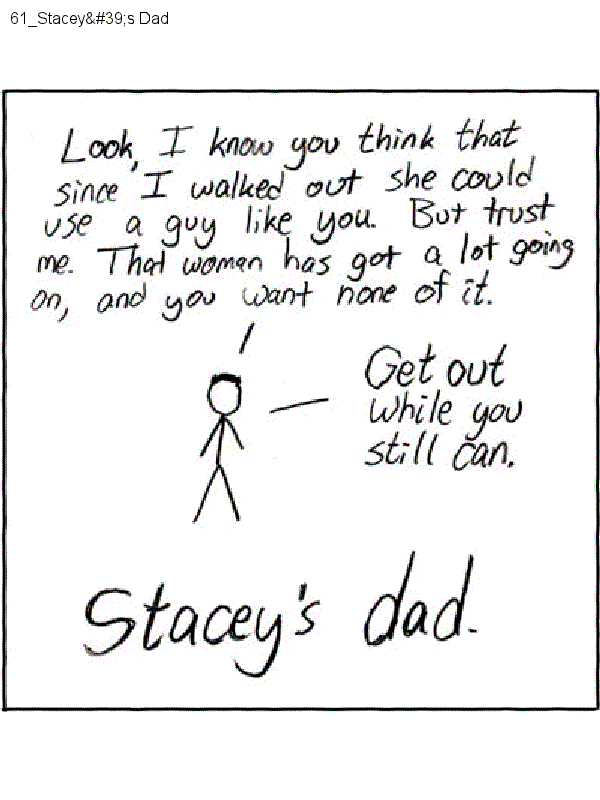 61_Stacey&#39;s Dad
Look, I know you think that
since I walked out she could
use a guy like you. But trust
me. That woman has got a lot going
on, and you want none of it.
Get out
while you
still can.
Stacey's dad.